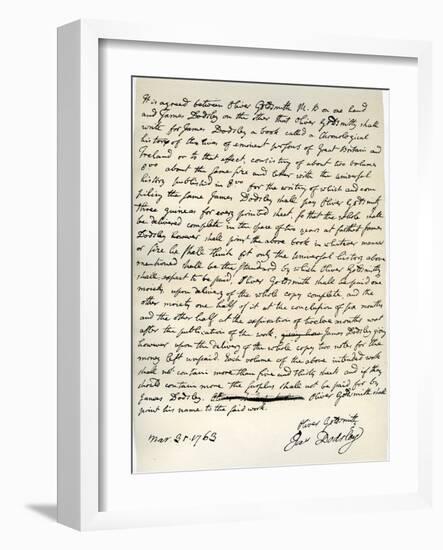 It is agreed between Oliver Goldsmith M.B on one hand
and James Dodsley on the other that Oliver Goldsmith shall
write for James Dodsley a book called a Chronological
history of the lives of eminent persons of Great Britain and
Ireland or to that effect, consisting of about two volumes
8vo about the same size and letter with the universal
history published in 8vo for the writing of which and com
piling the same James Dodsley shall pay Oliver Goldsmith
three guineas for every printed sheet, so that the whole shall
be delivered complete in the space of two years at farthest James
Dodsley however shall print the above book in whatever manner
or size he shall think fit only the Universal history above
mentioned shall be the standard by which Oliver Goldsmith
shall expect to be paid. Oliver Goldsmith shall be paid one
moiety upon delivery of the whole copy complete, and the
other moiety one half of it at the conclusion of six months
and the other half at the expiration of twelve months next
after the publication of the work, James Dodsley giving
however upon the delivery of the whole copy two notes for the
money left unpaid. Each volume of the above intended work
shall not contain more than five and thirty sheets and if they
should contain more the surplus shall not be paid for by
James Dodsley. Oliver Goldsmith shall
print his name to the said work.
Oliver Goldsmith
Jas Dodsley
Mar 31. 1763